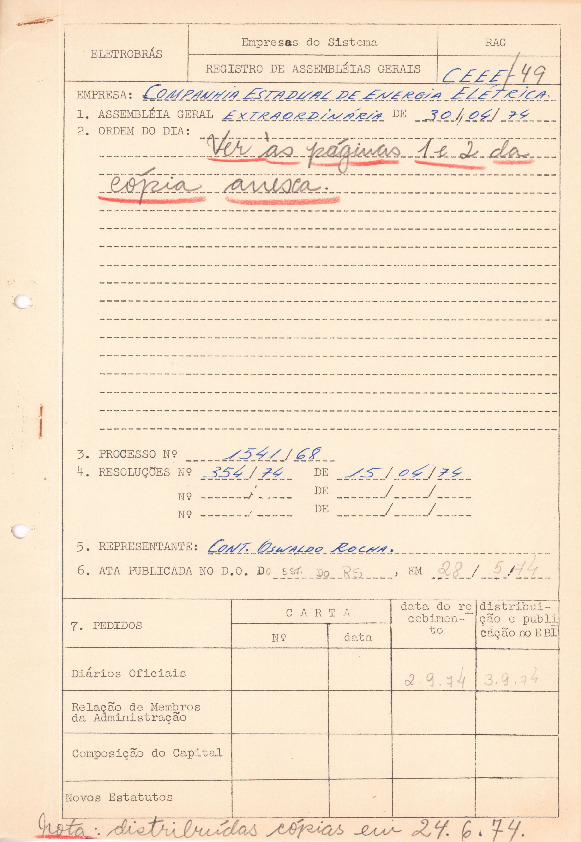 ELETROBRÁS
Empresas do Sistema
RAG
REGISTRO DE ASSEMBLÉIAS GERAIS
CEEE/49
EMPRESA: COMPANHIA ESTADUAL DE ENERGIA ELÉTRICA.
1. ASSEMBLÉIA GERAL EXTRAORDINÁRIA DE 30/04/74
2. ORDEM DO DIA:
Ver às páginas 1 e 2 da
cópia anexa.
3. PROCESSO Nº 1541/68
4. RESOLUÇÕES Nº 354/74 DE 15/04/74
Nº / DE / /
Nº / DE / /
5. REPRESENTANTE: CONT. OSWALDO ROCHA.
6. ATA PUBLICADA NO D.O. DO EST. DO RS, EM 28/5/74
7. PEDIDOS
C A R T A
Nº
data
data do re
cebimen-
to
distribui-
ção e publi
cação no EBI
Diários Oficiais 2.9.74 3.9.74
Relação de Membros
da Administração
Composição do Capital
Novos Estatutos
Nota: distribuídas cópias em 24.6.74.